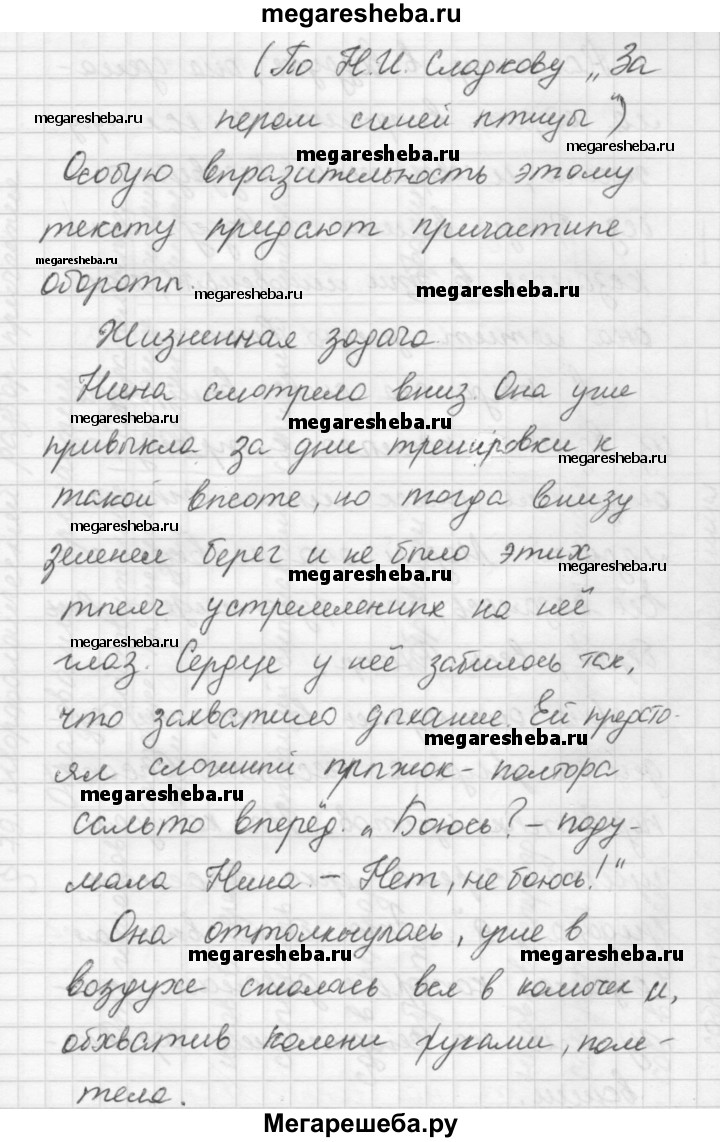 megaresheba.ru
(По Н.И. Сладкову „За
megaresheba.ru
пером синей птицы")
megaresheba.ru
megaresheba.ru
Особую впразительность этому
тексту придают причастипе
megaresheba.ru
оборотп.
megaresheba.ru
megaresheba.ru
Жизненная задача.
Нина смотрела вниз. Она уже
megaresheba.ru
megaresheba.ru
привыкла за дни тренировки к
megaresheba.ru
такой впсоте, но тогда внизу
megaresheba.ru
зеленел берег и не было этих
megaresheba.ru
megaresheba.ru
тпсяч устремленнпх на неё
megaresheba.ru
глаз. Сердце у неё забилось так,
что захватило дыхание. Ей предсто-
megaresheba.ru
ял сложнпй прпжок - полтора
megaresheba.ru
сальто вперёд. „Боюсь? - поду-
мала Нина. - Нет, не боюсь!"
Она оттолкнулась, уже в
megaresheba.ru
megaresheba.ru
воздухе сжалась вся в комочек и,
обхватив колени руками, поле-
тела.
Мегарешеба.ру